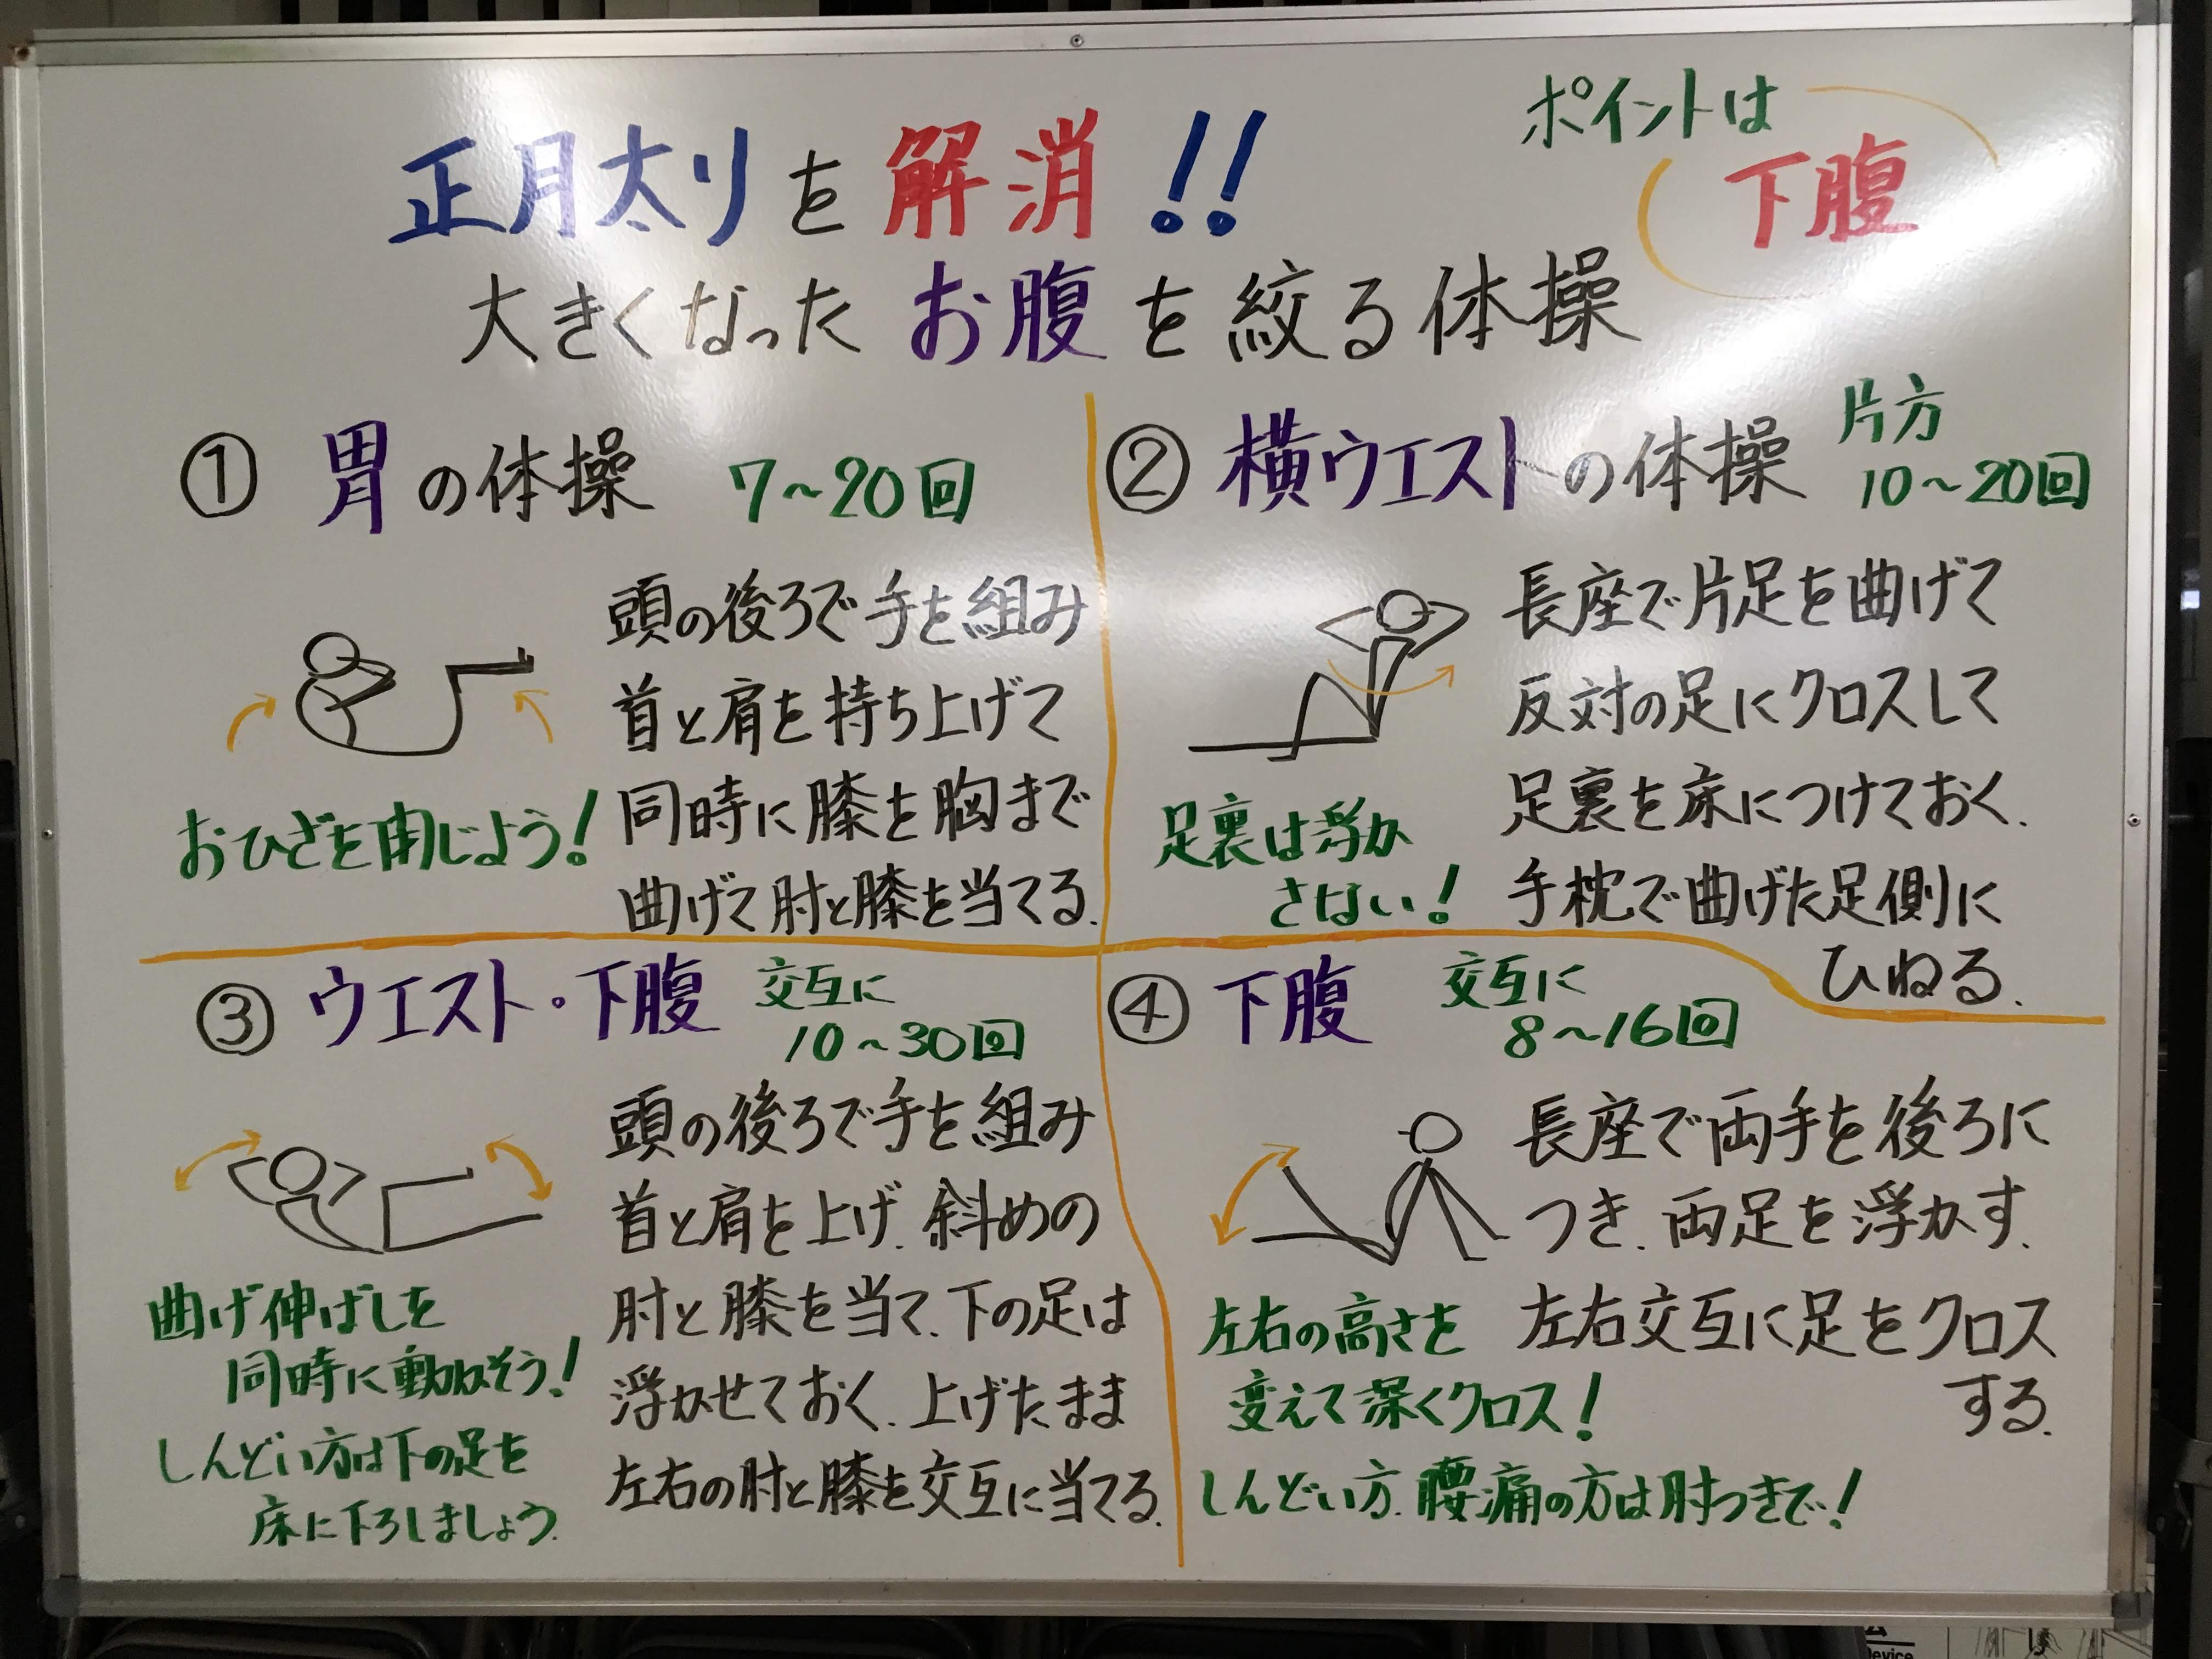 正月太りを解消!!
ポイントは
下腹
大きくなったお腹を絞る体操
① 胃の体操 7〜20回
頭の後ろで手を組み
首と肩を持ち上げて
同時に膝を胸まで
曲げて肘と膝を当てる.
おひざを閉じよう!
② 横ウエストの体操 片方
10〜20回
長座で片足を曲げて
反対の足にクロスして
足裏を床につけておく.
手枕で曲げた足側に
ひねる.
足裏は浮か
さない!
③ ウエスト・下腹 交互に
10〜30回
頭の後ろで手を組み
首と肩を上げ.斜めの
肘と膝を当て.下の足は
浮かせておく.上げたまま
左右の肘と膝を交互に当てる.
曲げ伸ばしを
同時に動かそう!
しんどい方は下の足を
床に下ろしましょう.
④ 下腹 交互に
8〜16回
長座で両手を後ろに
つき.両足を浮かす.
左右交互に足をクロス
する.
左右の高さを
変えて深くクロス!
しんどい方.腰痛の方は肘つきで!
evice